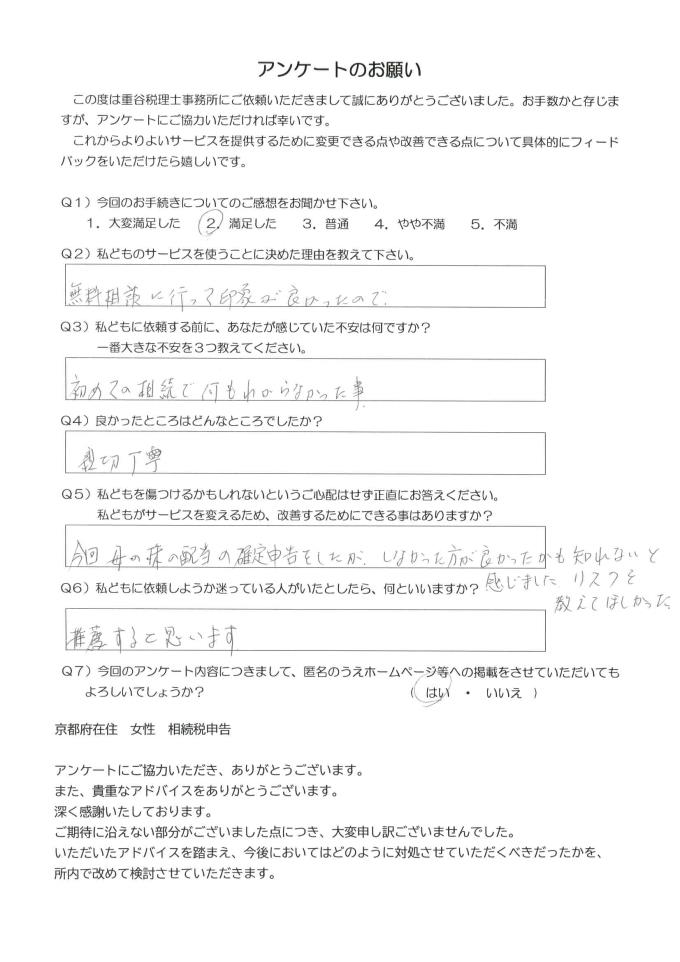 アンケートのお願い
この度は重谷税理士事務所にご依頼いただきまして誠にありがとうございました。お手数かと存じま
すが、アンケートにご協力いただければ幸いです。
これからよりよいサービスを提供するために変更できる点や改善できる点について具体的にフィード
バックをいただけたら嬉しいです。
Q1）今回のお手続きについてのご感想をお聞かせ下さい。
1．大変満足した　2．満足した　3．普通　4．やや不満　5．不満
Q2）私どものサービスを使うことに決めた理由を教えて下さい。
無料相談に行って印象が良かったので
Q3）私どもに依頼する前に、あなたが感じていた不安は何ですか？
一番大きな不安を3つ教えてください。
初めての相続で何もわからなかった事
Q4）良かったところはどんなところでしたか？
親切丁寧
Q5）私どもを傷つけるかもしれないというご心配はせず正直にお答えください。
私どもがサービスを変えるため、改善するためにできる事はありますか？
今回母の株の配当の確定申告をしたが、しなかった方が良かったかも知れないと
感じました リスクを
教えてほしかった
Q6）私どもに依頼しようか迷っている人がいたとしたら、何といいますか？
推薦すると思います
Q7）今回のアンケート内容につきまして、匿名のうえホームページ等への掲載をさせていただいても
よろしいでしょうか？　（　はい　・　いいえ　）
京都府在住　女性　相続税申告
アンケートにご協力いただき、ありがとうございます。
また、貴重なアドバイスをありがとうございます。
深く感謝いたしております。
ご期待に沿えない部分がございました点につき、大変申し訳ございませんでした。
いただいたアドバイスを踏まえ、今後においてはどのように対処させていただくべきだったかを、
所内で改めて検討させていただきます。